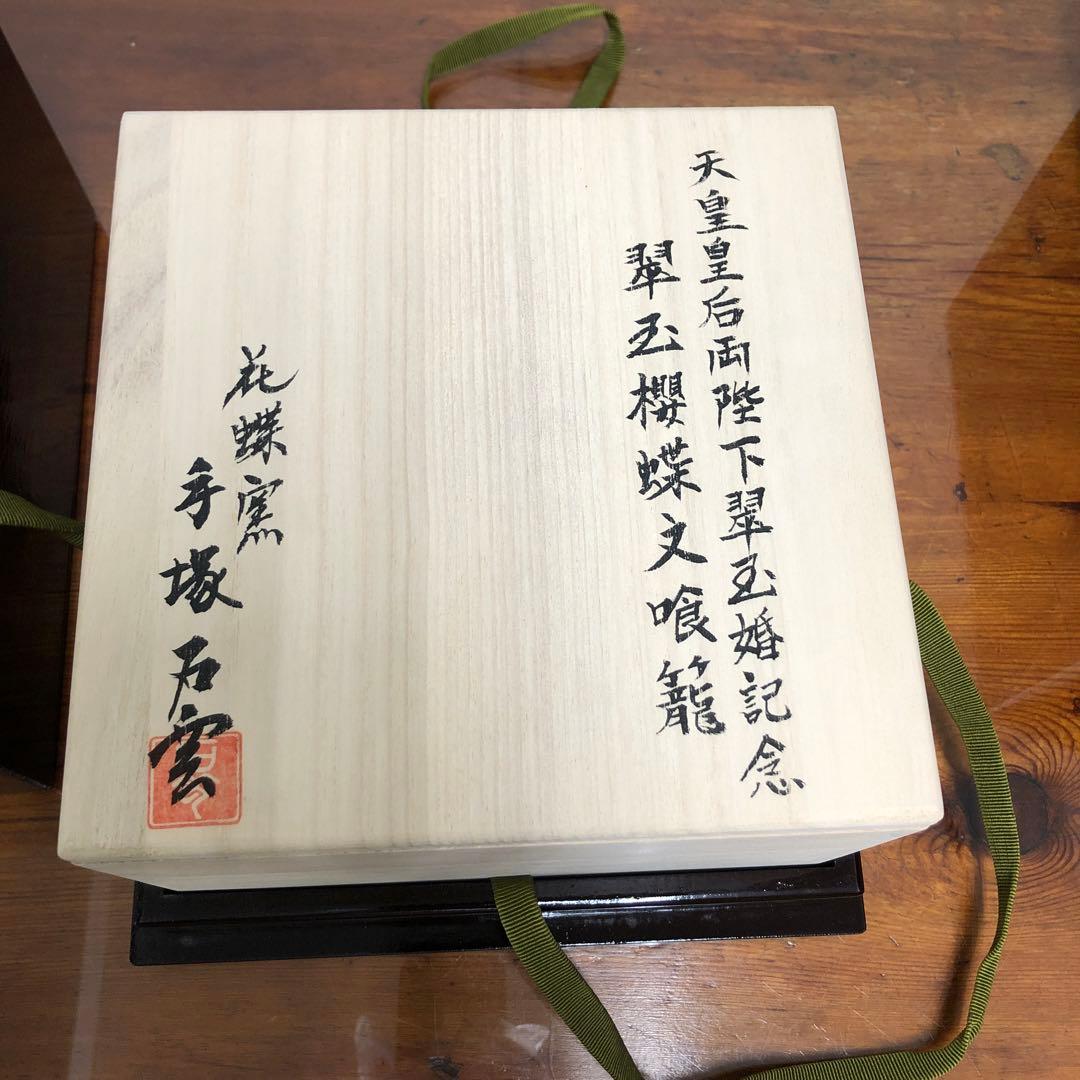 天皇皇后両陛下翠玉婚記念
翠玉櫻蝶文喰籠
花蝶窯
手塚石雲